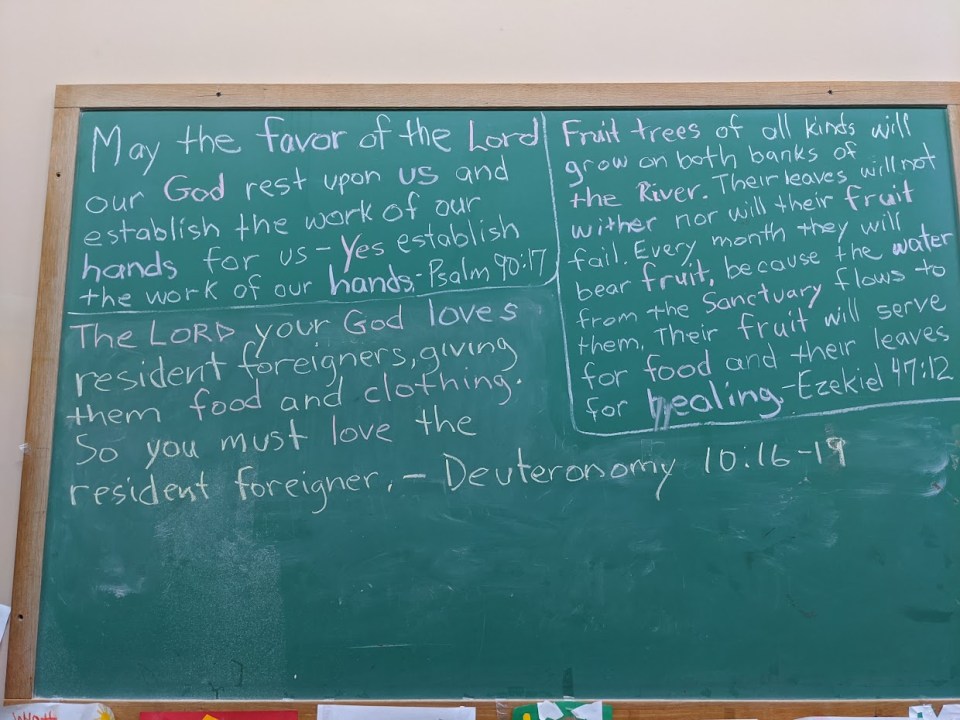 May the favor of the Lord
our God rest upon us and
establish the work of our
hands for us - Yes establish
the work of our hands, - Psalm 90:17
Fruit trees of all kinds will
grow on both banks of
the River. Their leaves will not
wither nor will their fruit
fail. Every month they will
bear fruit, because the water
from the Sanctuary flows to
them. Their fruit will serve
for food and their leaves
for healing. - Ezekiel 47:12
The LORD your God loves
resident foreigners, giving
them food and clothing.
So you must love the
resident foreigner. - Deuteronomy 10:16-19